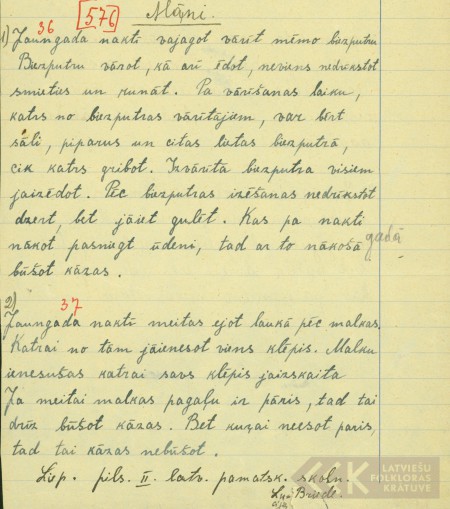 Māņi.
36 [576]
1) Jaungada naktī vajagot vārīt mēmo biezputru
Biezputru vārot, kā arī ēdot, neviens nedrīkstot
smieties un runāt. Pa vārīšanas laiku,
katrs no biezputras vārītājiem, var bērt
sāli, piparus un citas lietas biezputrā,
cik katrs gribot. Izvārīta biezputra visiem
jāizēdot. Pēc biezputras izēšanas nedrīkstot
dzert, bet jāiet gulēt. Kas pa nakti
nākot pasniegt ūdeni, tad ar to nākošā gadā
būšot kāzas.
2) 37
Jaungada naktī meitas ejot laukā pēc malkas.
Katrai no tām jāienesot viens klēpis. Malku
ienesušas katrai savs klēpis jāizskaita
Ja meitai malkas pagaļu ir pāris, tad tai
drīz būšot kāzas. Bet kuŗai neesot pāris,
tad tai kāzas nebūšot.
Liep. pils. II. latv. pamatsk. skoln.
Briede.
LATVIEŠU
FOLKLORAS
KRĀTUVE